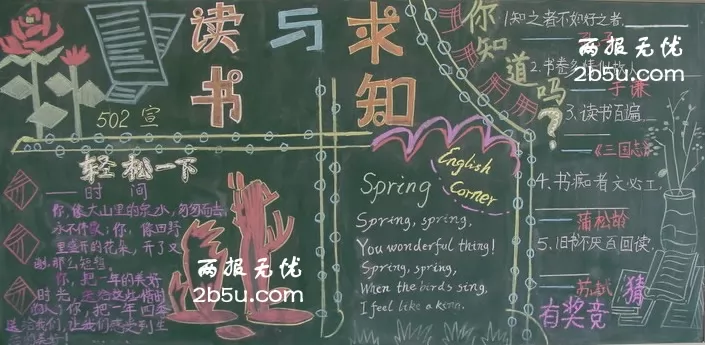 读书与求知
502 宣
轻松一下
——时 间
你,像大山里的泉水,匆匆而去,
永不停歇;你,像田野
里盛开的花朵,开了又
谢,那么短暂。
你,把一年的美好
时光,
你,把一年四季
送给我们,让我们感受到生
English
Corner
Spring
Spring, spring,
You wonderful thing!
Spring, spring,
When the birds sing,
I feel like a king.
你知道吗?
1.知之者不如好之者,
2.书卷多情似故人,
于谦
3.读书百遍,
《三国志》
4.书痴者文必工,
蒲松龄
5.旧书不厌百回读,
苏轼
有奖竞猜
两报无优
2b5u.com
两报无优
2b5u.com